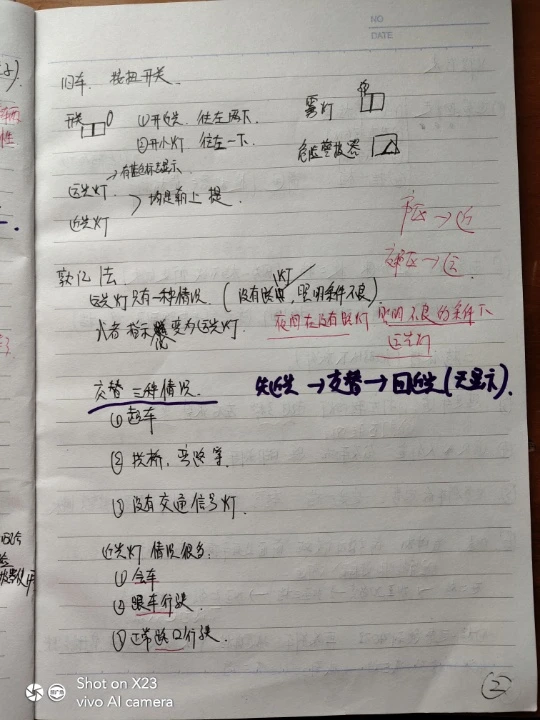 NO
DATE
旧车. 按扭开关.
开关 ①开近光 往左两下. 雾灯
②开小灯 往左一下. 危监警报器
→有蓝色标志显示
远光灯 均是前上提.
近光灯
市区→近
郊区→远
软记法.
灯
远光灯只有一种情况. (没有路, 照明条件不良)
或者指示变为远光灯. 夜间在没有路灯 照明不良的条件下
远光灯
交替三种情况. 先近光→交替→回近光(无显示).
①超车
②拱桥, 弯路等
③没有交通信号灯.
近光灯 情况很多.
①会车
②跟车行驶.
③正常路口行驶.
②
Shot on X23
vivo AI camera